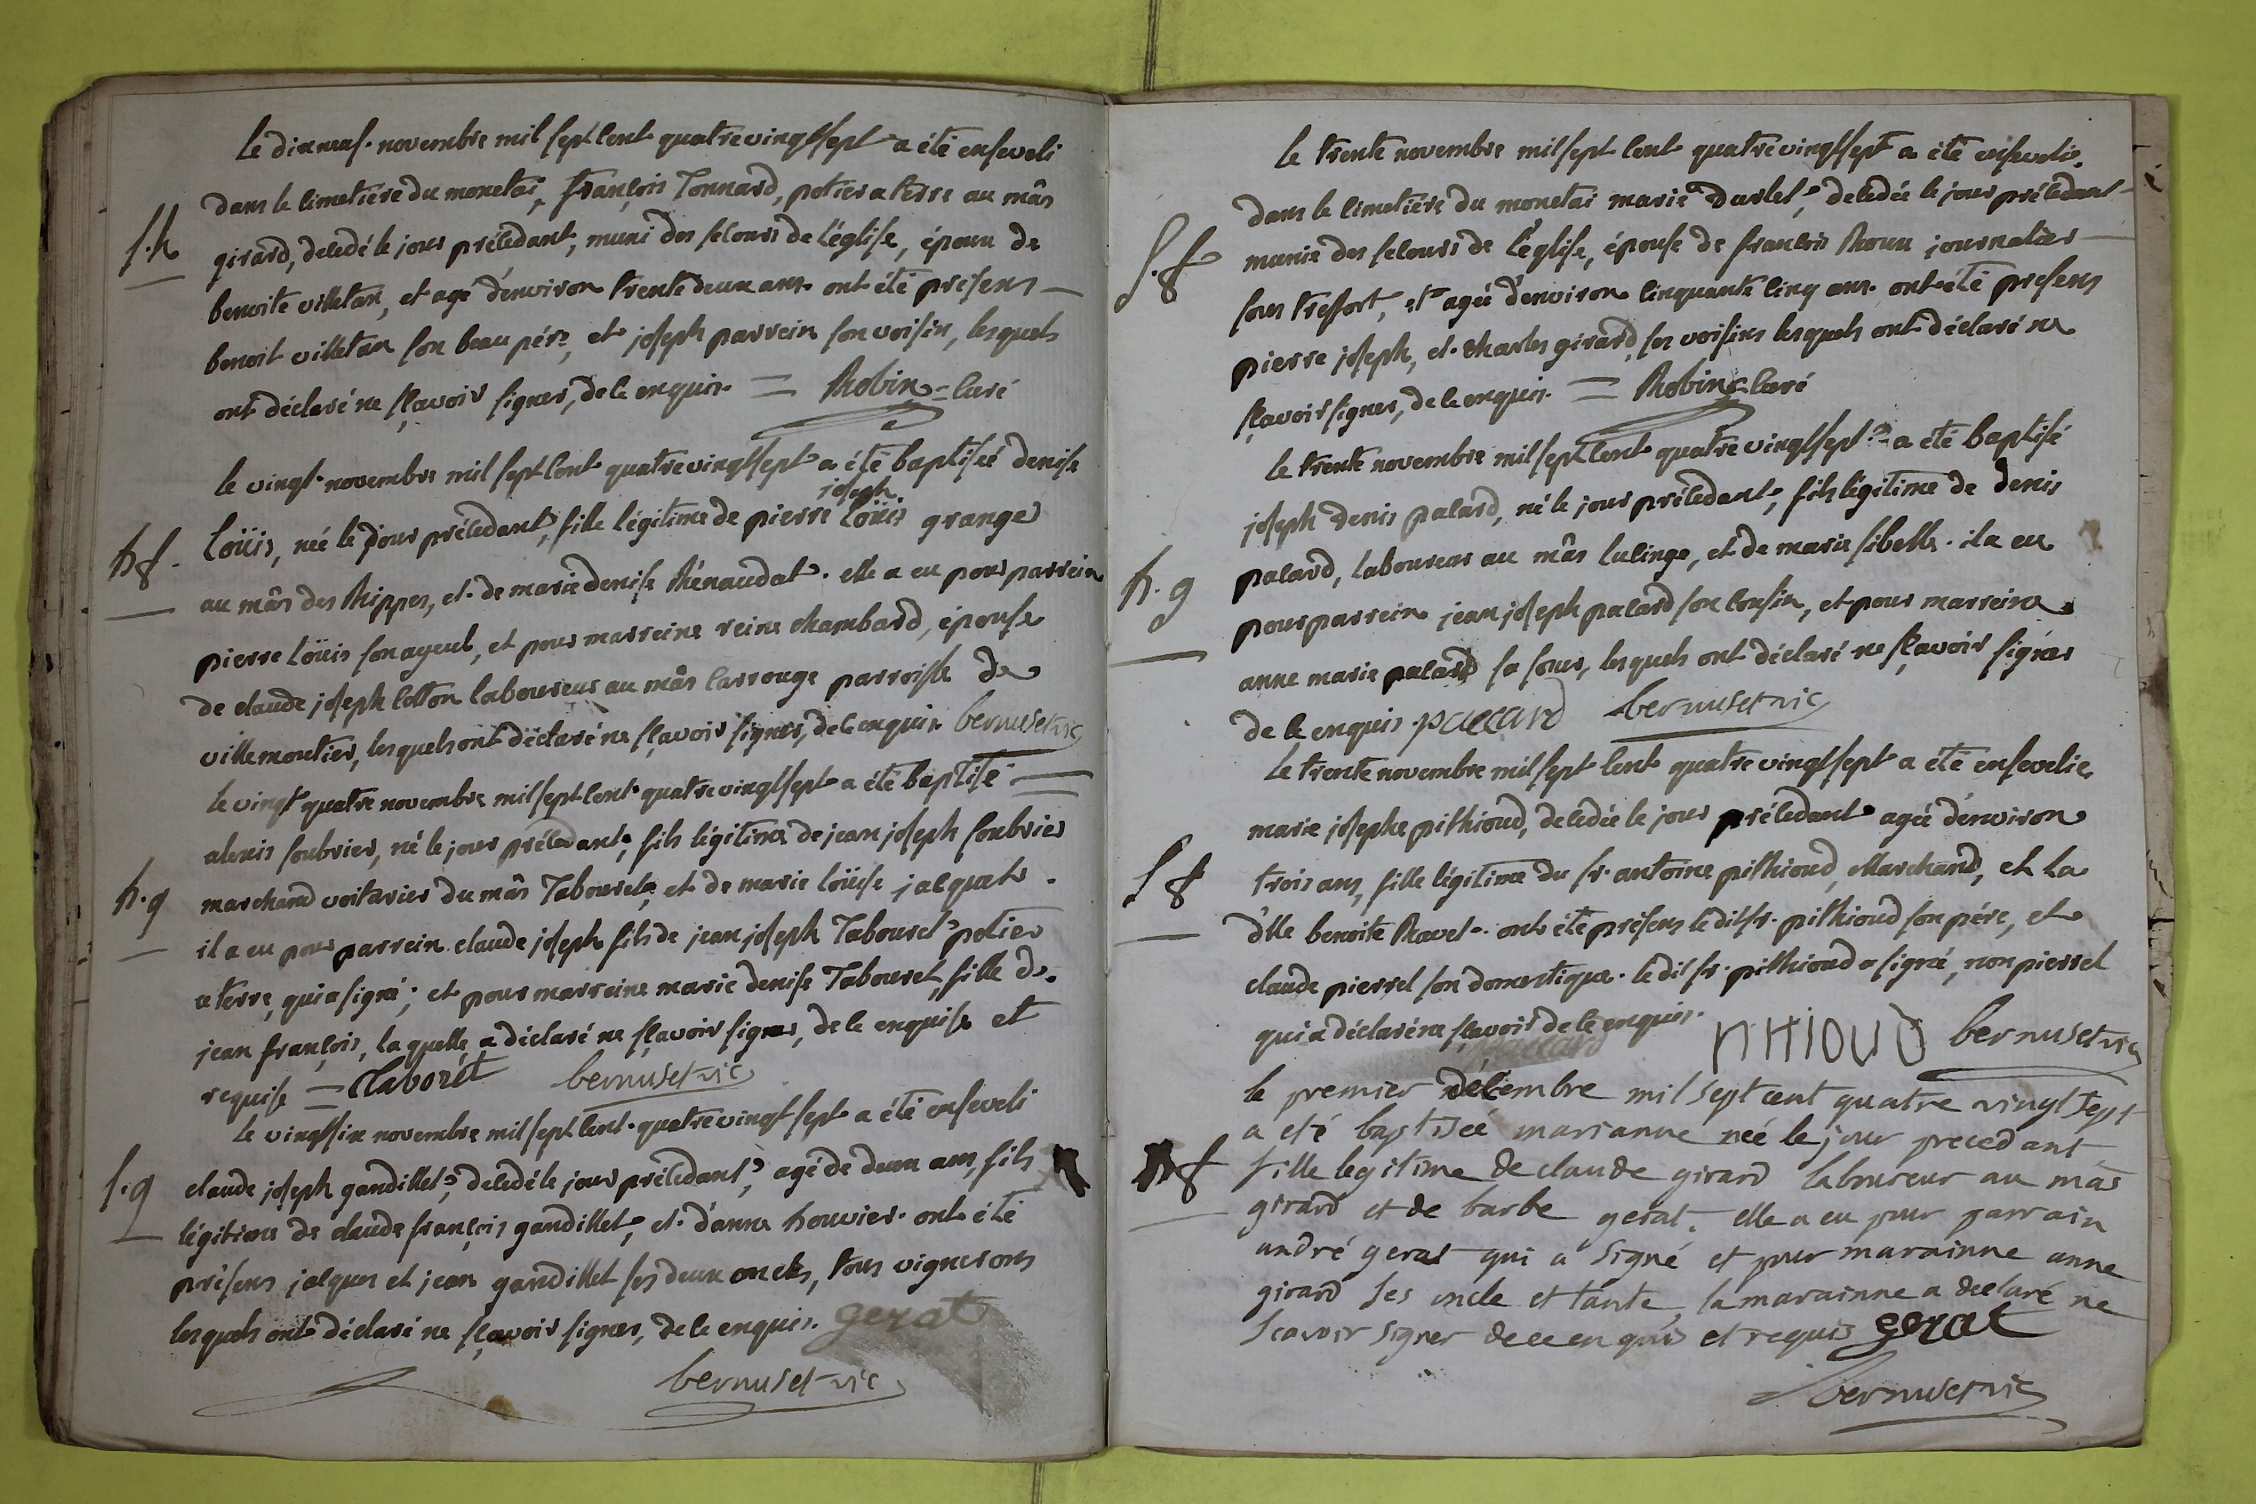 Le dixneuf novembre mil sept cent quatrevingtsept a été enseveli
dans le cimetiere du monetai, françois Tonnard, potier a terre au mâs
s.h
girard, decedé le jour précedant, muni des secours de l'église, époux de
benoite villetan, et agé d'environ trente deux ans. ont été presens
benoit villetan son beau pére, et joseph parrein son voisin, lesquels
ont déclaré ne sçavoir signer, de ce enquis = Robin curé
le vingt novembre mil sept cent quatrevingtsept a été baptiseé denise
joseph
Loüis, neé le jour précedant, fille légitime de pierre Loüis grange
b.f.
au mâs des Rippes, et de marie denise Rénaudat. elle a eu pour parrein
pierre Loüis son ayeul, et pour marreine reine chambard, épouse
de claude joseph cotton laboureur au mâs carrouge parroisse de
villemoutier, lesquels ont déclaré ne sçavoir signer, de ce enquis bernuset vic
le vingt quatre novembre mil sept cent quatrevingtsept a été baptisé
alexis soubrier, né le jour précedant, fils légitime de jean joseph soubrier
b.g
marchand voiturier du mâs Tabouret, et de marie loüise jacquet.
il a eu pour parrein claude joseph fils de jean joseph Tabouret potier
a terre, qui a signé; et pour marreine marie denise Tabouret, fille de
jean françois, la quelle a déclaré ne sçavoir signer, de ce enquise et
requise = Taboret bernuset vic
le vingtsix novembre mil sept cent quatrevingt sept a été enseveli
s.g
claude joseph gandillet, decedé le jour précedant, agé de deux ans, fils
légitime de claude françois gandillet, et d'anne bouvier. ont été
présens jacques et jean gandillet ses deux oncles, tous vignerons
lesquels ont déclaré ne sçavoir signer, de ce enquis. gerat
bernuset vic
le trente novembre mil sept cent quatrevingtsept a été ensevelie
dans le cimetiere du monetai marie Darlet, decedée le jour précedant
s.f
munie des secours de l'église, épouse de françois Roux journalier
sous treffort, et ageé d'environ cinquante cinq ans. ont été presens
pierre joseph, et charles girard, ses voisins lesquels ont déclaré ne
sçavoir signer, de ce enquis. = Robin curé
le trente novembre mil sept cent quatre vingtsept a été baptisé
joseph denis palard, né le jour précedant, fils légitime de denis
b.g
palard, laboureur au mâs lulinge, et de marie sibelle. il a eu
pour parrein jean joseph palard son cousin, et pour marreine
anne marie palard sa sœur, lesquels ont déclaré ne sçavoir signer
de ce enquis. paccard bernuset vic
le trente novembre mil sept cent quatre vingtsept a été ensevelie
marie josephe pithioud, decedée le jour précedant ageé d'environ
s f
trois ans, fille légitime du sr. antoine pithioud, Marchand, et la
d'lle benoite Ravet. ont été présens ledit sr. pithioud son pére, et
claude pierrel son domestique. ledit sr. pithioud a signé, non pierrel
qui a déclaré ne sçavoir de ce enquis. PITHIOUD bernuset vic
le premier décembre mil sept cent quatre vingt sept
a eté baptisée marianne neé le jour precedant
b f
fille legitime de claude girard laboureur au mâs
girard et de barbe gerat. elle a eu pour parrain
andré gerat qui a signé et pour marainne anne
girard ses oncle et tante, la marainne a declaré ne
scavoir signer de ce enquis et requis gerat
bernuset vic